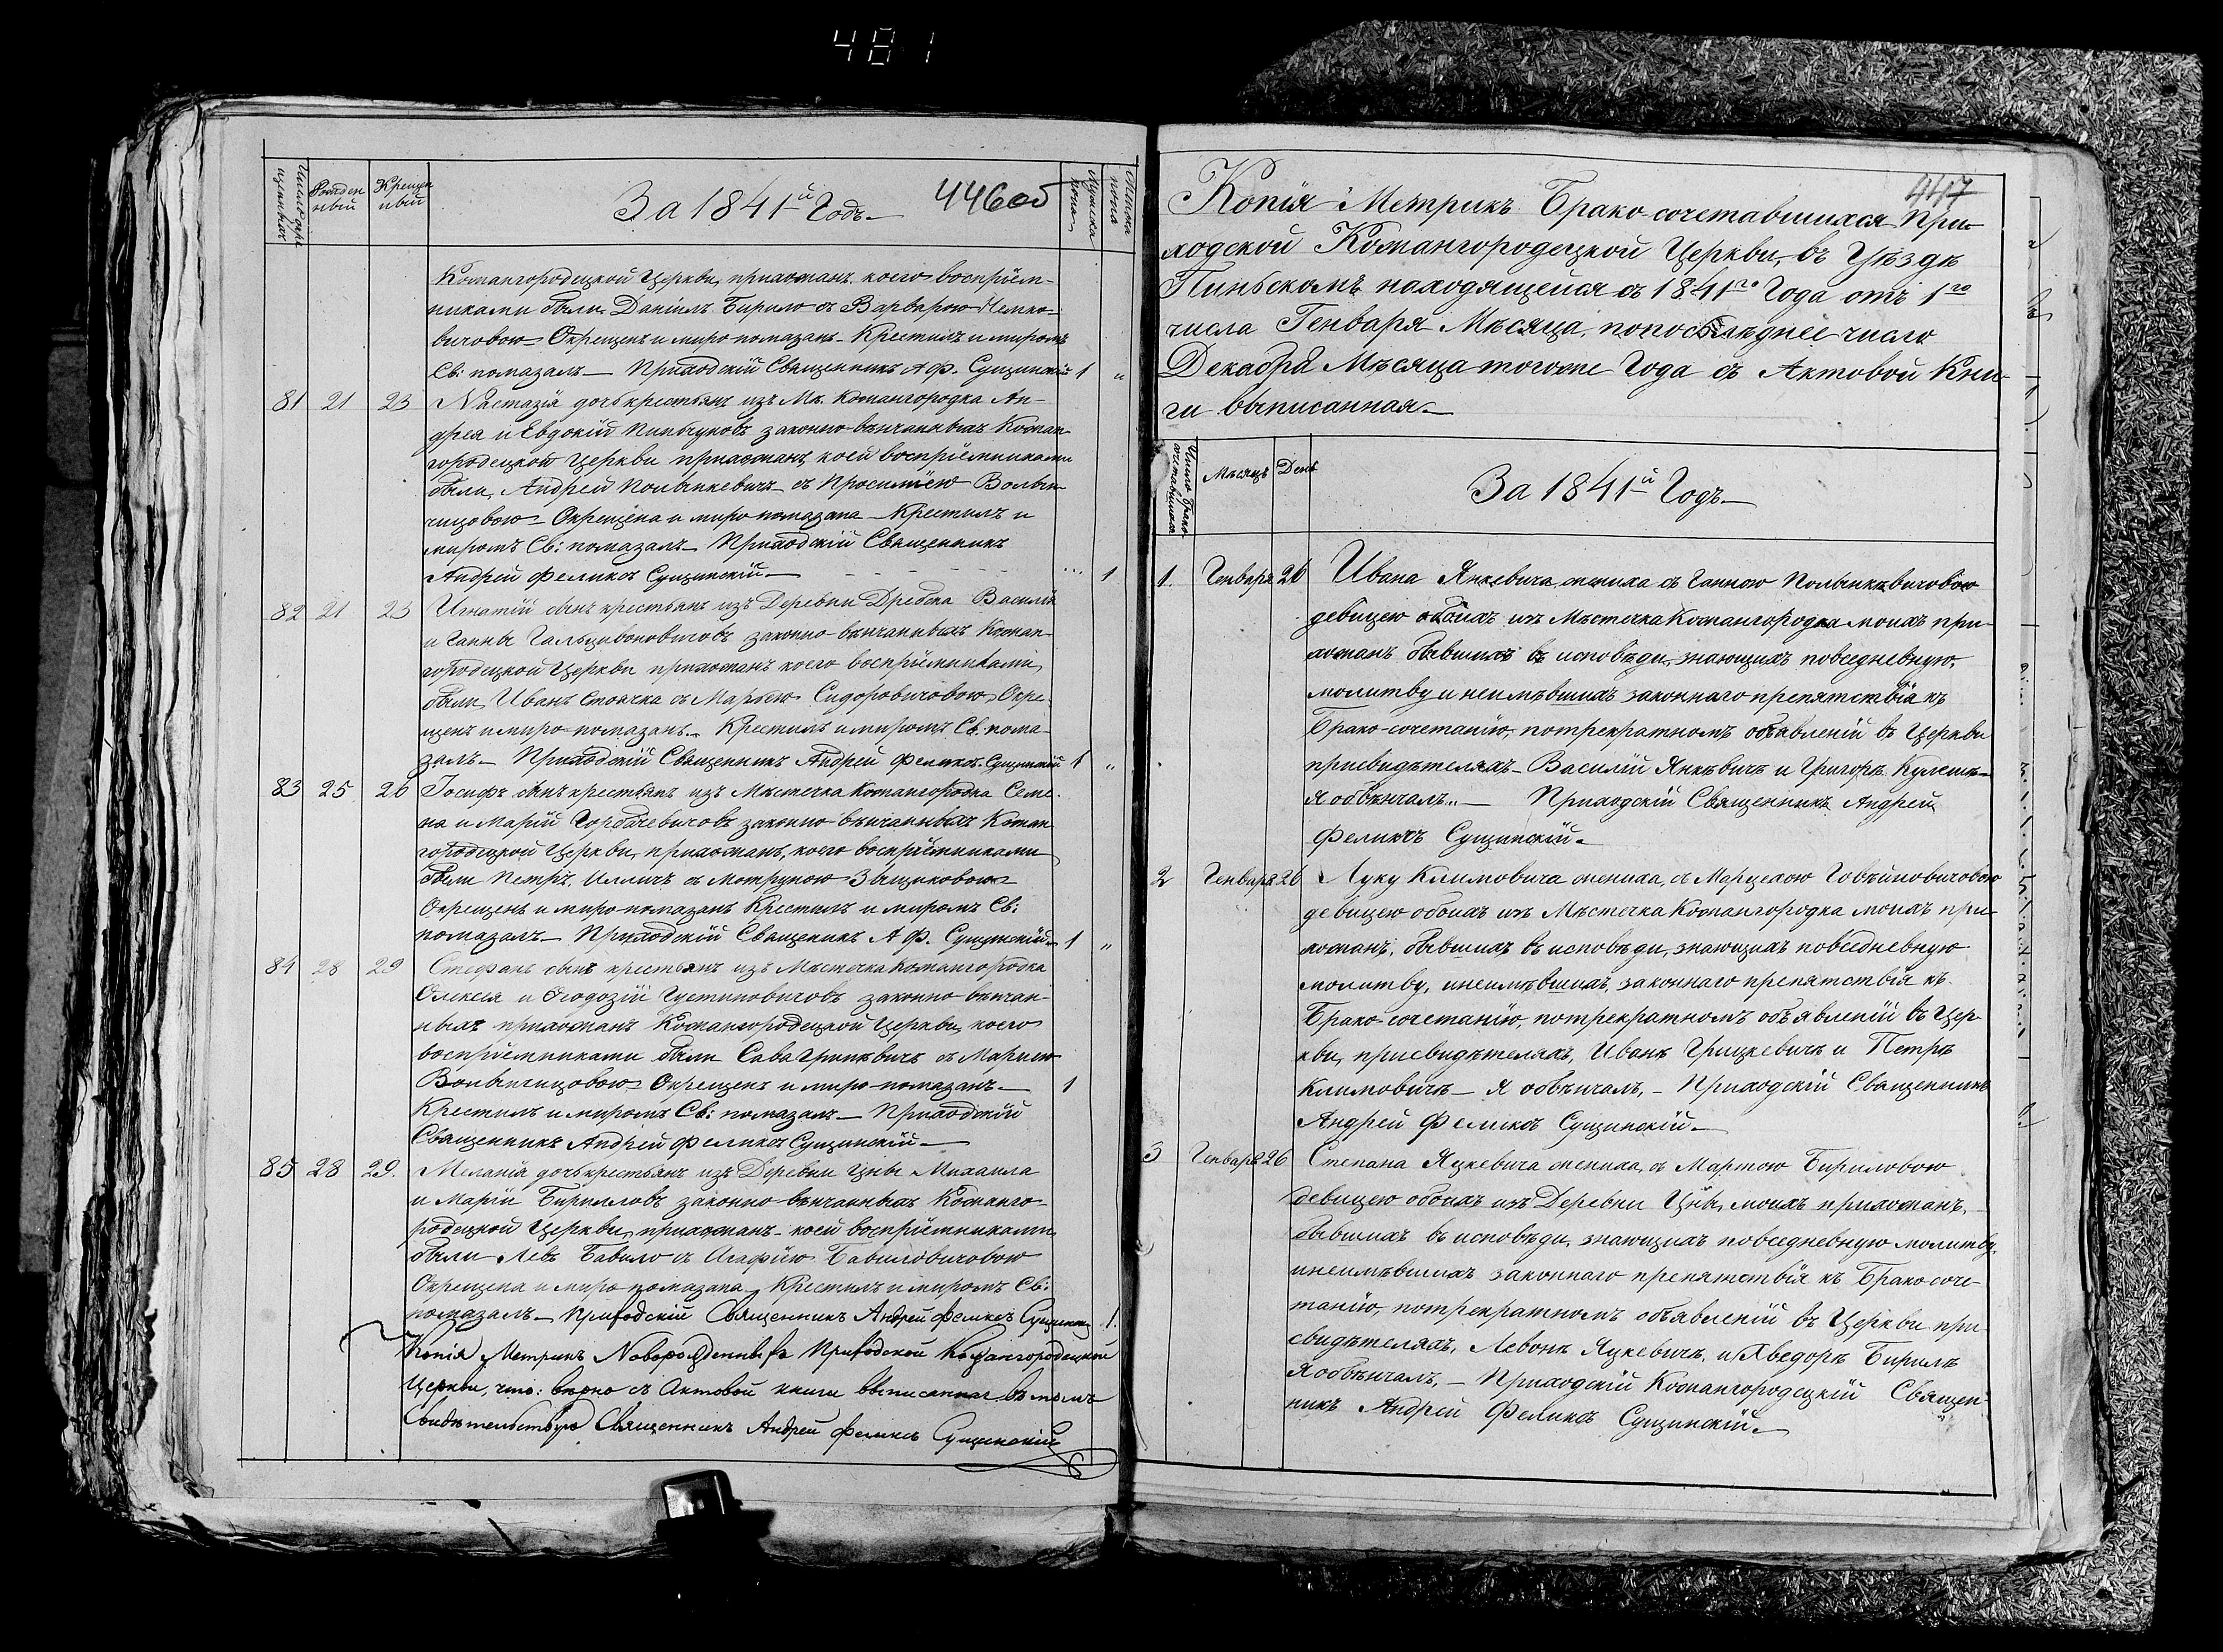 481
Число окре
щенных
Рожден
ный
Крещен
ный
За 1841й Годъ
446 об
Мужеска
пола
Женска
пола
Кожангородецкой Церкви, прихожанъ, коего восприем-
никами были Даніилъ Бирило съ Варварою
вичовою Окрещенъ и миро помазанъ. Крестилъ и миромъ
Св: помазалъ Приходскій Священникъ А Ф. Сущинскій 1 "
81 21 23 Настазія дочь крестьянъ изъ Мѣ. Кожангородка Ан-
дрея и Евдокіи законно-вѣнчанныхъ Кожан-
городецкой Церкви прихожанъ, коей восприемниками
были, Андрей Полынкевичъ съ
Окрещена и миро помазана Крестилъ и
миромъ Св: помазалъ Приходскій Священникъ
Андрей Феликсъ Сущинскій 1
82 21 23 Игнатій сынъ крестьянъ изъ Деревни Дребска Василія
и Ганны законно-вѣнчанныхъ Кожан-
городецкой Церкви прихожанъ коего восприемниками
были, Иванъ съ Марьею Сидоровичовою, Окре-
щенъ и миро помазанъ. Крестилъ и миромъ Св. пома-
залъ Приходскій Священникъ Андрей Феликсъ Сущинскій 1 "
83 25 26 Іосифъ сынъ крестьянъ изъ Мѣстечка Кожангородка Семе-
на и Маріи Горбачевичовъ законно-вѣнчанныхъ Кожан-
городецкой Церкви, прихожанъ, коего восприемниками
были Петръ Илличъ съ Мотруною
Окрещенъ и миро помазанъ Крестилъ и миромъ Св:
помазалъ Приходскій Священикъ А Ф. Сущинскій 1 "
84 28 29 Стефанъ сынъ крестьянъ изъ Мѣстечка Кожангородка
Олексея и Ѳеодозіи Густиновичовъ законно-вѣнчан-
ныхъ прихожанъ Кожангородецкой Церкви, коего
восприемниками были Сава съ Марьею
Окрещенъ и миро-помазанъ 1
Крестилъ и миромъ Св: помазалъ Приходскій
Священникъ Андрей Феликсъ Сущинскій
85 28 29. Меланія дочь крестьянъ изъ Деревни Цны Михаила
и Маріи Бириловъ законно-вѣнчанныхъ Кожанго-
родецкой Церкви, прихожанъ коей восприемниками
были Левъ съ Агафіею
Окрещена и миро помазана, Крестилъ и миромъ Св:
помазалъ Приходскій Священникъ Андрей Феликсъ Сущинскій 1.
Копія Метрикъ Новорожденныхъ Приходской Кожангородецкой
Церкви, что: вѣрно съ Актовой книги выписанная въ томъ
Свидѣтельствую Священникъ Андрей Феликсъ Сущинскій
447
Копія Метрикъ Брако-сочетавшихся При-
ходской Кожангородецкой Церкви, въ Уѣздѣ
Пиньскомъ находящейся съ 1841го Года отъ 1го
числа Генваря Мѣсяца, по последнее число
Декабря Мѣсяца тогоже Года съ Актовой Кни-
ги выписанная
Число Брако-
сочетавшихся
Мѣсяцъ
День
За 1841й Годъ
1. Генваря 26 Ивана Янкевича жениха съ Ганною Полынкевичовою
девицею обоихъ изъ Мѣстечка Кожангородка моихъ при-
хожанъ бывшихъ въ исповѣди, знающихъ повседневную
молитву и неимѣвшихъ законнаго препятствія къ
Брако-сочетанію, потрекратномъ объявленіи въ Церкви
присвидѣтеляхъ Василій Янкевичъ и Григоръ Кулешъ
Я обвѣнчалъ Приходскій Священникъ Андрей
Феликсъ Сущинскій
2 Генваря 26 Луку Климовича жениха, съ Марцелою
девицею обоихъ изъ Мѣстечка Кожангородка моихъ при-
хожанъ, бывшихъ въ исповѣди, знающихъ повседневную
молитву, инеимѣвшихъ, законнаго препятствія къ
Брако-сочетанію, потрекратномъ объявленіи въ Цер-
кви, присвидѣтеляхъ, Иванъ Грицкевичъ и Петръ
Климовичъ Я обвѣнчалъ, Приходскій Священникъ
Андрей Феликсъ Сущинскій
3 Генваря 26 Степана Яцкевича жениха, съ Мартою Бириловою
девицею обоихъ изъ Деревни Цны, моихъ прихожанъ,
бывшихъ въ исповѣди, знающихъ повседневную молитву,
инеимѣвшихъ законнаго препятствія къ Брако-соче-
танію, потрекратномъ объявленіи въ Церкви при-
свидѣтеляхъ, Левонъ Яцкевичъ, и Хведоръ Бирилъ
Я обвѣнчалъ, Приходскій Кожангородецкій Священ-
никъ Андрей Феликсъ Сущинскій